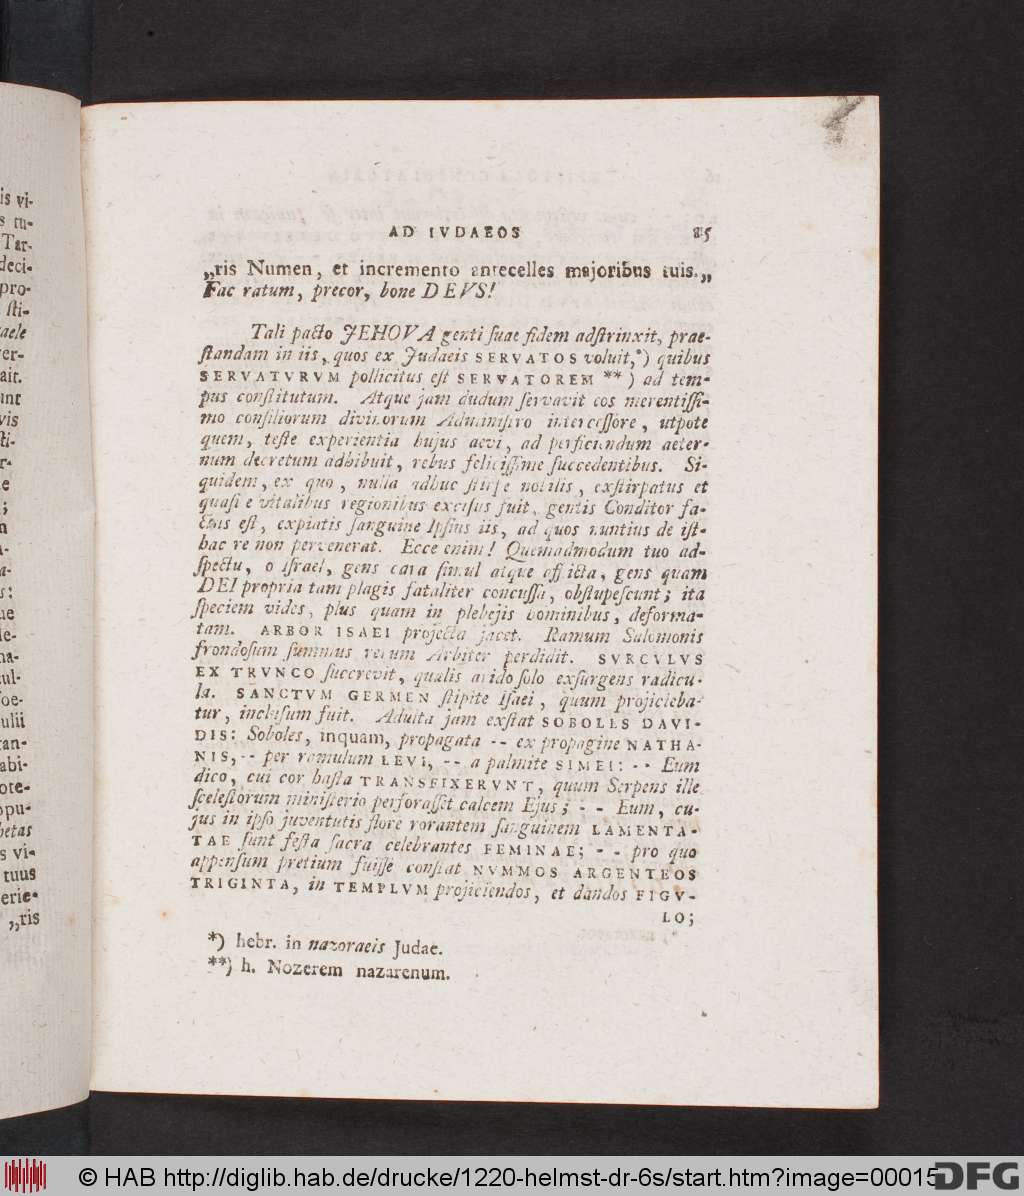 is vi-
s tu-
Tar-
deci-
pro-
sti-
aele
er-
ait.
unt
vis
sti-
r-
e
;
n
a-
s:
ue
le-
na-
cul-
foe-
ulii
ran-
abi-
ote-
opu-
hetas
s vi-
tuus
erie-
„ris
AD IVDAEOS 15
„ris Numen, et incremento antecelles majoribus tuis.„
Fac ratum, precor, bone DEVS!
Tali pacto JEHOVA genti suae fidem adstrinxit, prae-
standam in iis, quos ex Judaeis SERVATOS voluit,*) quibus
SERVATVRVM pollicitus est SERVATOREM **) ad tem-
pus constitutum. Atque jam dudum servavit eos merentissi-
mo consiliorum divinorum Administro intercessore, utpote
quem, teste experientia hujus aevi, ad perficiendum aeter-
num decretum adhibuit, rebus felicissime succedentibus. Si-
quidem, ex quo, nulla adhuc stirpe nobilis, exstirpatus et
quasi e vitalibus regionibus excisus fuit, gentis Conditor fa-
ctus est, expiatis sanguine Ipsius iis, ad quos nuntius de ist-
hac re non pervenerat. Ecce enim! Quemadmodum tuo ad-
spectu, o Israel, gens cara simul atque afflicta, gens quam
DEI propria tam plagis fataliter concussa, obstupescunt; ita
speciem vides, plus quam in plebejis hominibus, deforma-
tam. ARBOR ISAEI projecta jacet. Ramum Salomonis
frondosum summus rerum Arbiter perdidit. SVRCVLVS
EX TRVNCO succrevit, qualis arido solo exsurgens radicu-
la. SANCTVM GERMEN stipite Isaei, quum projicieba-
tur, inclusum fuit. Adulta jam exstat SOBOLES DAVI-
DIS: Soboles, inquam, propagata -- ex propagine NATHA-
NIS, -- per ramulum LEVI, -- a palmite SIMEI: -- Eum
dico, cui cor hasta TRANSFIXERVNT, quum Serpens ille
scelestorum ministerio perforasset calcem Ejus; -- Eum, cu-
jus in ipso juventutis flore rorantem sanguinem LAMENTA-
TAE sunt festa sacra celebrantes FEMINAE; -- pro quo
appensum pretium fuisse constat NVMMOS ARGENTEOS
TRIGINTA, in TEMPLVM projiciendos, et dandos FIGV-
LO;
*) hebr. in nazoraeis Judae.
**) h. Nozerem nazarenum.
© HAB http://diglib.hab.de/drucke/1220-helmst-dr-6s/start.htm?image=00015
DFG